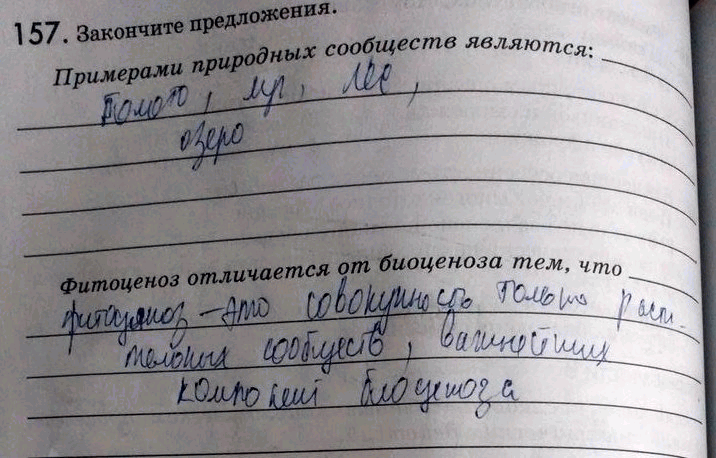 157. Закончите предложения.
Примерами природных сообществ являются:
болото, луг, лес,
озеро
Фитоценоз отличается от биоценоза тем, что
фитоценоз - это совокупность только расти-
тельных сообществ, важнейших
компонент биоценоза